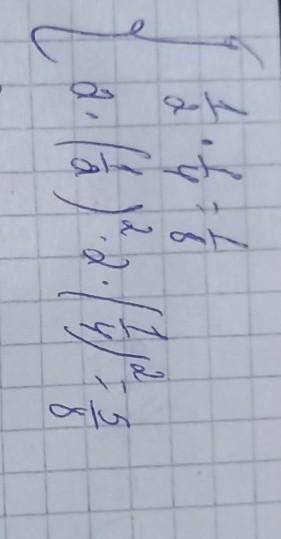 1/2 · 1/4 = 1/8
2 · (1/2)² · 2 · (1/4)² = 5/8